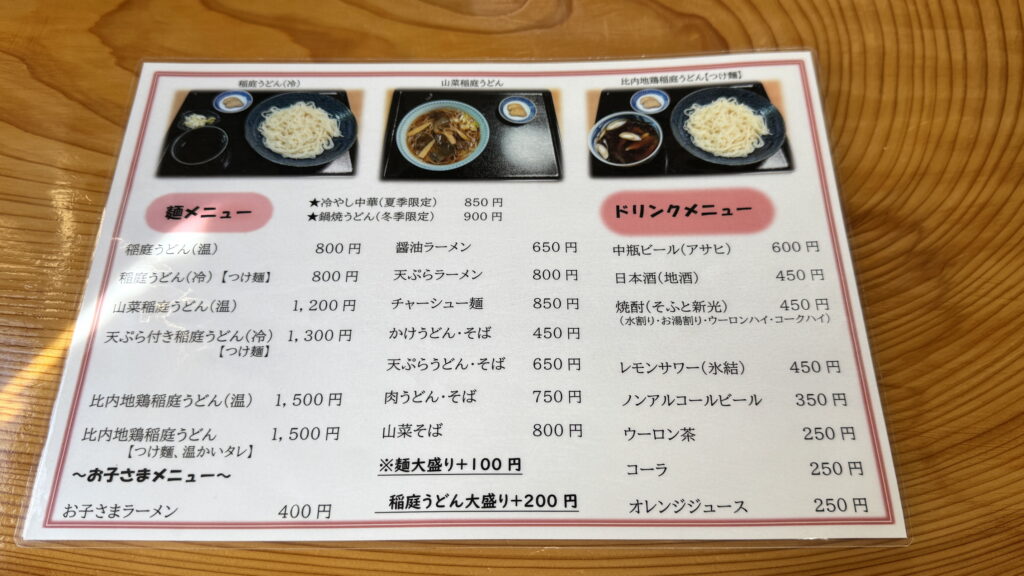 稲庭うどん(冷)
山菜稲庭うどん
比内地鶏稲庭うどん【つけ麺】
麺メニュー
★冷やし中華(夏季限定) 850円
★鍋焼うどん(冬季限定) 900円
稲庭うどん(温) 800円
稲庭うどん(冷)【つけ麺】 800円
山菜稲庭うどん(温) 1,200円
天ぷら付き稲庭うどん(冷) 1,300円
【つけ麺】
比内地鶏稲庭うどん(温) 1,500円
比内地鶏稲庭うどん 1,500円
【つけ麺、温かいタレ】
~お子さまメニュー~
お子さまラーメン 400円
醤油ラーメン 650円
天ぷらラーメン 800円
チャーシュー麺 850円
かけうどん・そば 450円
天ぷらうどん・そば 650円
肉うどん・そば 750円
山菜そば 800円
※麺大盛り+100円
稲庭うどん大盛り+200円
ドリンクメニュー
中瓶ビール(アサヒ) 600円
日本酒(地酒) 450円
焼酎(そふと新光) 450円
(水割り・お湯割り・ウーロンハイ・コークハイ)
レモンサワー(氷結) 450円
ノンアルコールビール 350円
ウーロン茶 250円
コーラ 250円
オレンジジュース 250円